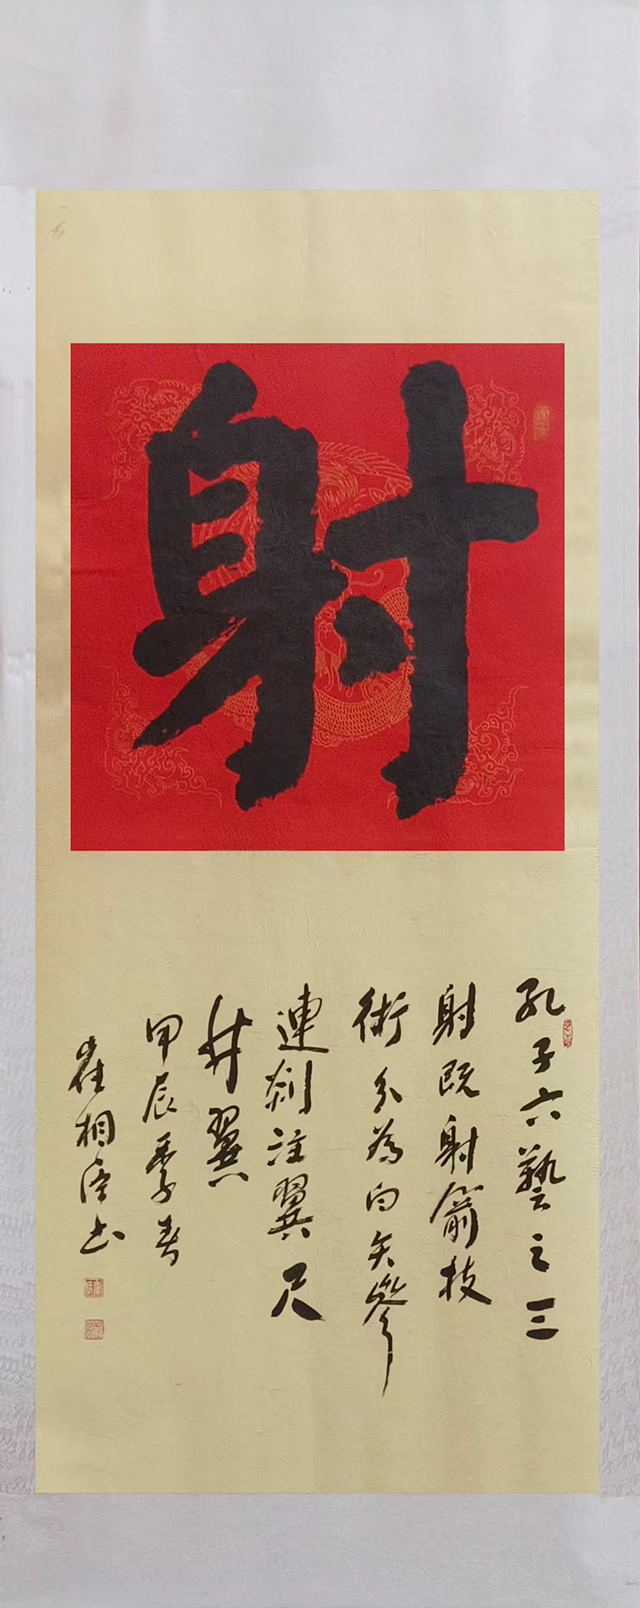 射
孔子六藝之三
射既射箭技
術分為白矢參
連剡注翼尺
井翼
甲辰季春
崔相 書